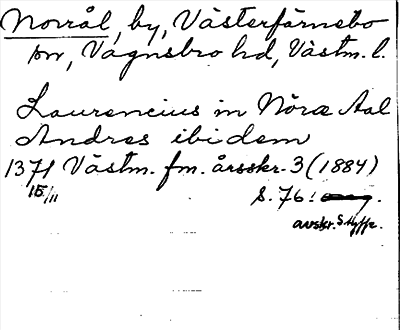 Norrål, by, Västerfärnebo
sn, Vagnsbro hd, Västm. l.
Laurencius in Nöræ Aal
Andres ibidem
1371 Västm. fm. årsskr. 3 (1884)
15/11
S. 76.
avskr. S. Hyffz.